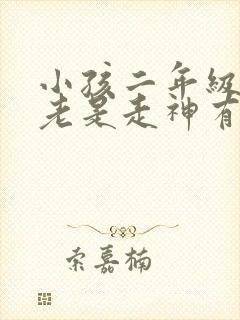 小孩二年级
老是走神有
索嘉楠